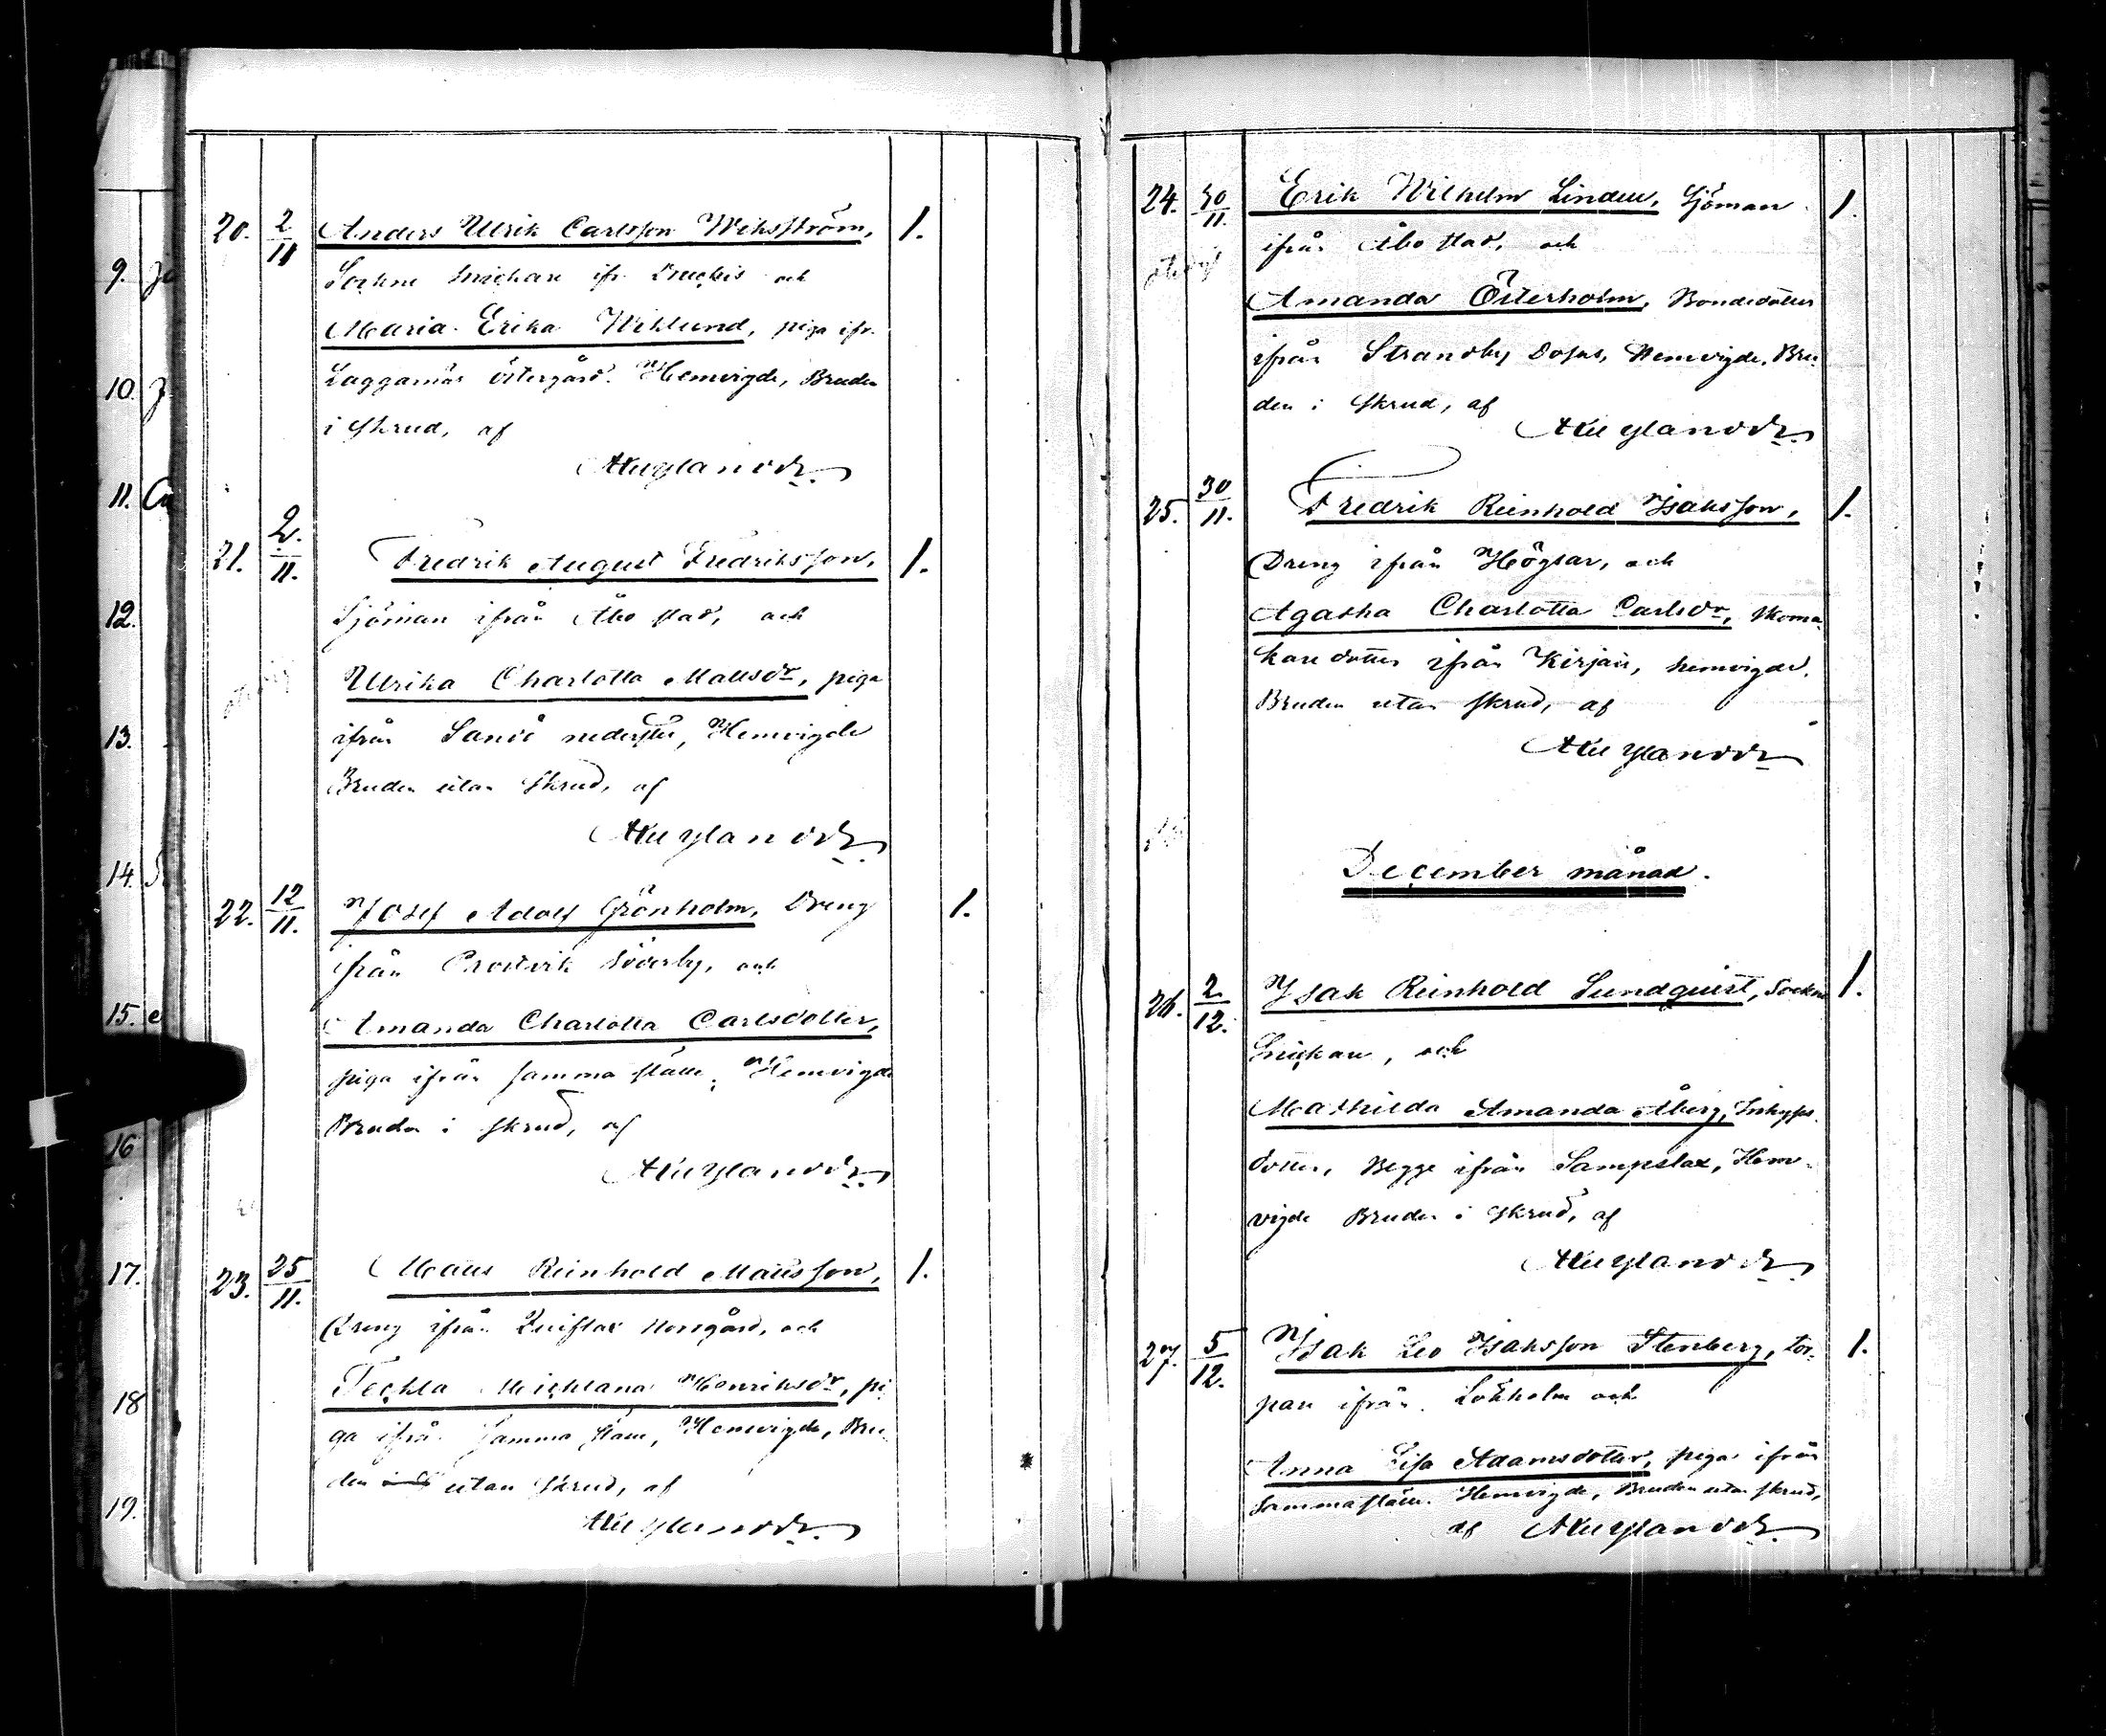 20. 2/11 Anders Ulrik Carlsson Wiksström, 1.
Sockne snickare ifr. och
Maria Erika Wiklund, piga ifr.
Laggarnäs östergård. Hemvigde, Bruden
i skrud, af
21. 2./11. Fredrik August Fredriksson, 1.
Sjöman ifrån Åbo stad, och
Ulrika Charlotta Mattsdr, piga
ifrån Sandö nederstu, Hemvigde
Bruden utan skrud, af
22. 12/11. Josef Adolf Grönholm, Dreng 1.
ifrån Prostvik Söderby, och
Amanda Charlotta Carlsdotter,
piga ifrån samma ställe, Hemvigde
Bruden i skrud, af
23. 25/11. Matts Reinhold Mattsson, 1.
Dreng ifrån Norrgård, och
Teckla Michlana Henriksdr, pi
ga ifrån samma ställe, Hemvigde, Bru
den utan skrud, af
9.
10.
11.
12.
13.
14.
15.
16
17.
18
19.
24. 30/11. Erik Wilhelm Linden, Sjöman 1.
ifrån Åbo stad, och
Amanda Österholm, Bondedotter
ifrån Strandby Hemvigde, Bru
den i skrud, af
25. 30/11. Fredrik Reinhold Isaksson, 1.
Dreng ifrån Högsar, och
Agatha Charlotta Carlsdr, skoma
kare dotter ifrån Kirjais, hemvigde.
Bruden utan skrud, af
December månad.
26. 2/12. Isak Reinhold Sundquist, Sockne 1.
Snickare, och
Mathilda Amanda Åberg, Inhyses
dotter, Begge ifrån Sampslax, Hem
vigde Bruden i skrud, af
27. 5/12. Isak Leo Isaksson Stenberg, tor- 1.
pare ifrån Lökholm och
Anna Lisa Adamsdotter, piga ifrån
samma ställe. Hemvigde, Bruden utan skrud,
af